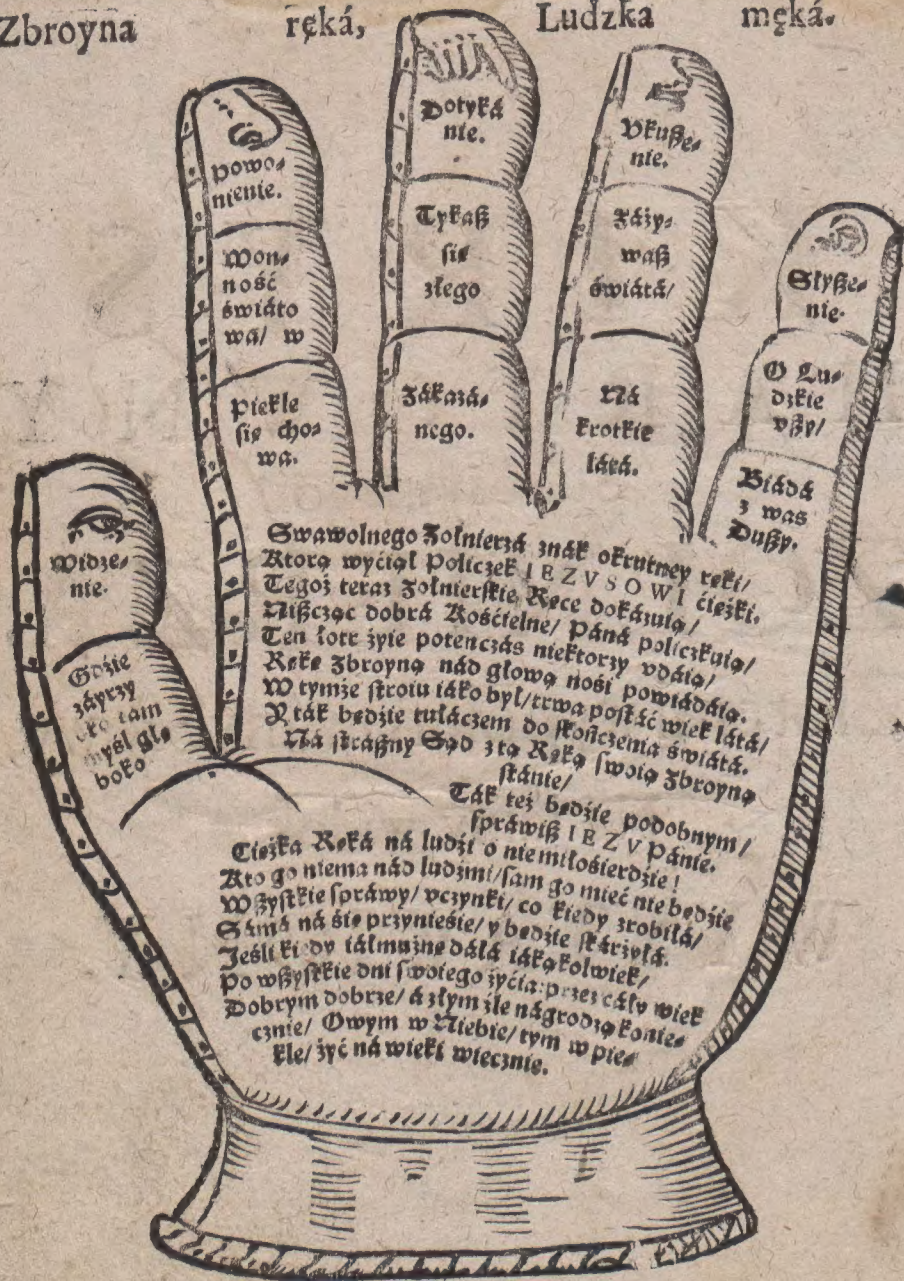 Zbroyna ręká, Ludzka męká.
Widze-
nie.
Gdzie
záyrzy
oko tam
myśl glę
boko
Powo-
nienie.
Won-
ność
świáto
wa/ w
Piekle
się cho-
wa.
Dotyká
nie.
Tykaß
się
złego
Zákazá-
nego.
Vkuße-
nie.
Záży-
waß
świátá/
Ná
krotkie
látá.
Słyße-
nie.
O Lu-
dzkie
vßy/
Biádá
z was
Dußy.
Swawolnego Zołnierzá znák okrutney ręki/
Ktorą wyćiął Policzek IEZVSOWI ćięßki.
Tegoż teraz Zołnierskie Ręce dokázuią/
Nißcząc dobrá Kośćielne/ Páná policzkuią/
Ten łotr żyie potenczás niektorzy vdáią/
Rękę Zbroyną nád głową nośi powiádáią.
W tymże stroiu iáko był/ trwa postáć wiek látá/
Y ták będźie tułáczem do skończenia świátá.
Ná stráßny Sąd z tą Ręką swoią Zbroyną
stánie/
Ták też będźie podobnym/
spráwiß IEZV Pánie.
Ciężka Ręká ná ludźi o niemiłośierdźie!
Kto go niema nád ludźmi/ sam go mieć nie będźie
Wßystkie spráwy/ vczynki/ co kiedy zrobiłá/
Sámá ná śię przynieśie/ y będźie skárżyłá.
Jeśli kiedy iáłmużnę dáłá iákąkolwiek/
Po wßystkie dni swoiego żyćia: przez cáły wiek
Dobrym dobrze/ á złym źle nágrodzą konie-
cznie/ Owym w Niebie/ tym w pie-
kle/ żyć ná wieki wiecznie.